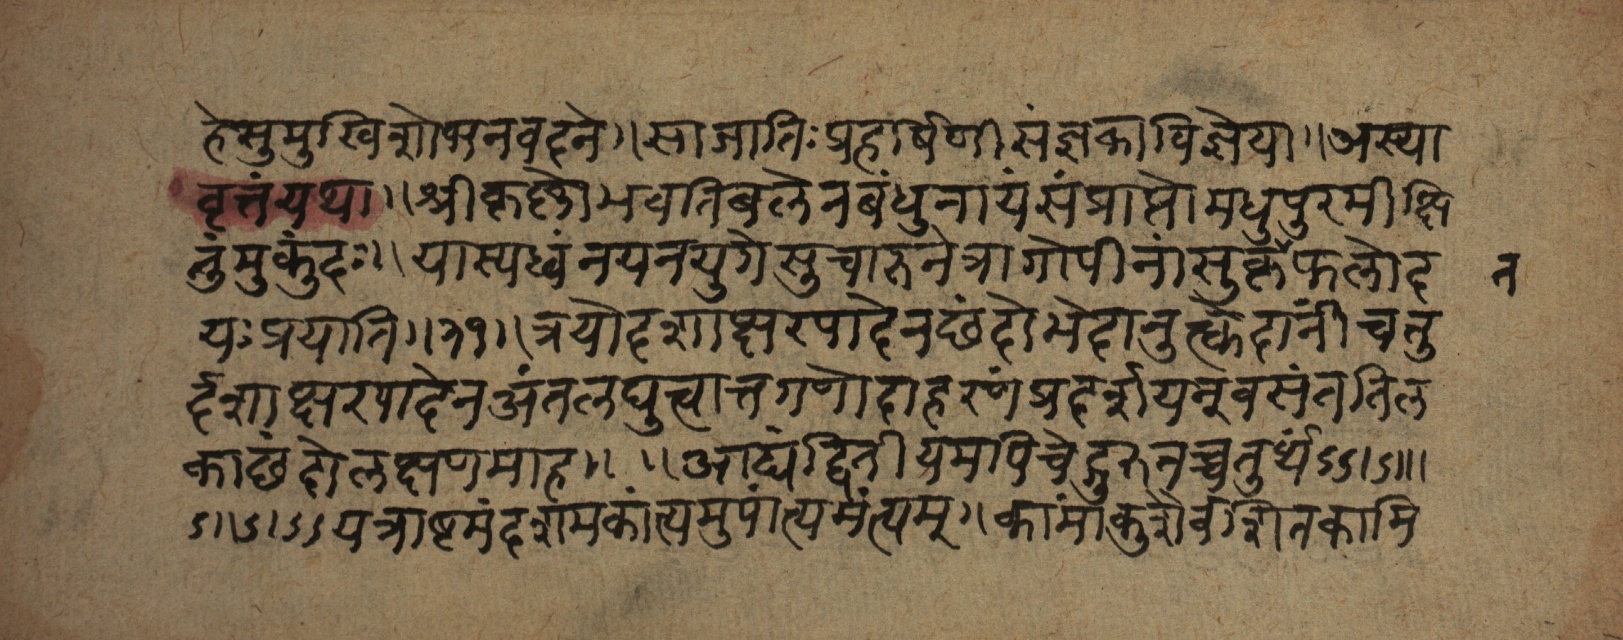 हेसुमुखिशोभनवदने।।साजातिःप्रहर्षिणीसंज्ञकाविज्ञेया।।अस्या
वृत्तंयथा।।श्रीकृष्णोभवतिबलेनबंधुनायंसंप्राप्तोमधुपुरमीक्षि
तुंमुकुंदः।।यास्यध्वंनयनयुगेसुचारुनेत्रागोपीनांसुकृँफलोद न
यःप्रयाति।।३१।।त्रयोदशाक्षरपादेनछंदोभेदानुक्त्वेदांनींचतु
र्दशाक्षरपादेनअंतलघुत्वात्तगणोदाहरणंप्रदर्शयन्वसंततिल
काछंदोलक्षणमाह।। ।।आद्यंद्वितीयमपिचेद्गुरुतच्चतुर्थंऽऽ।ऽ॥।
ऽ।।ऽ।ऽऽयत्राष्टमंदशमकांत्यमुपांत्यमंत्यम्।।कामांकुशेवशितकामि